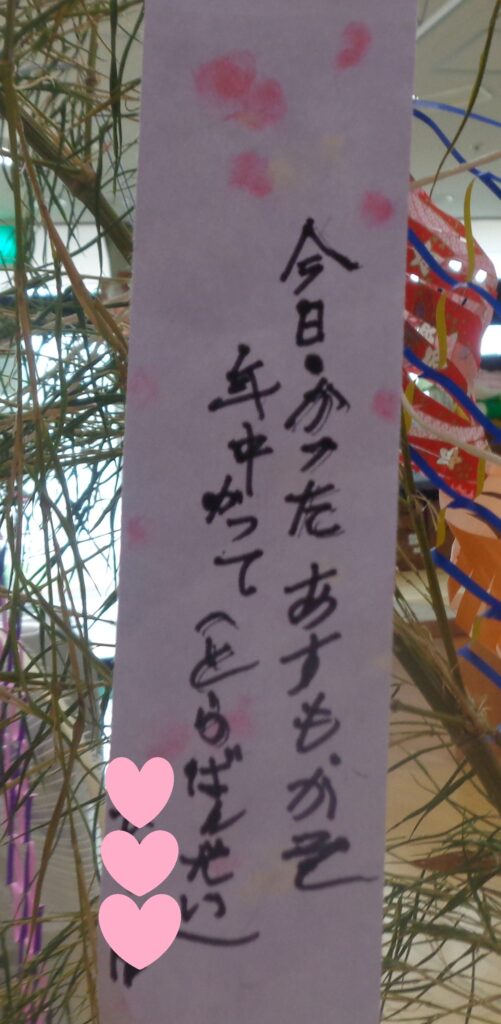 今日かった あすもかぞ
年中かって(とらばんせい)